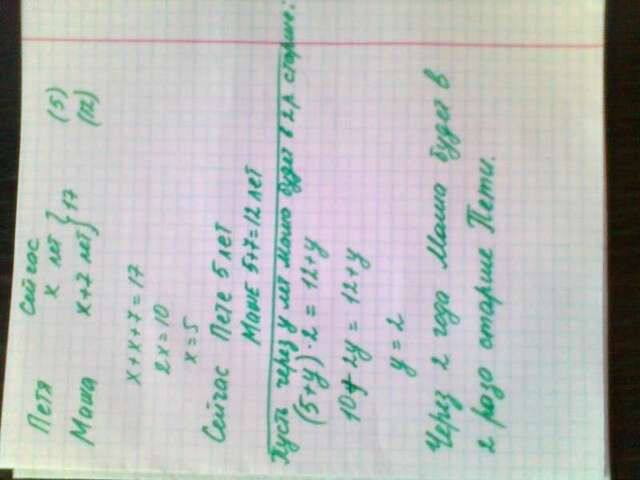 Сейчас
Петя х лет } 17 (5)
Маша х+7 лет (12)
х+х+7=17
2х=10
х=5
Сейчас Пете 5 лет
Маше 5+7=12 лет
Пусть через у лет Маша будет в 2 р. старше:
(5+у)·2=12+у
10+2у=12+у
у=2
Через 2 года Маша будет в
2 раза старше Пети.